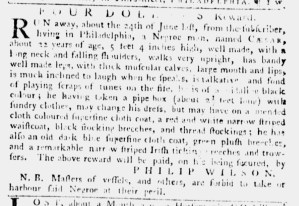 FOUR DOLLARS Reward.
RUN away, about the 24th of June last, from the subscriber,
living in Philadelphia, a Negroe man, named CÆSAR,
about 22 years of age, 5 feet 4 inches high, well made, with a
long neck and falling shoulders, walks very upright, has bandy
well made legs, with thick muscular calves, large mouth and lips,
is much inclined to laugh when he speaks, is talkative and fond
of playing scraps of tunes on the fife, he is of a
colour; he having taken a pipe box (about 2 feet long) with
sundry clothes, may change his dress, but may have on a mended
cloth coloured superfine cloth coat, a red and white narrow striped
waistcoat, black stocking breeches, and thread stockings; he has
also an old dark blue superfine cloth coat, green plush breeches,
and a remarkable narrow striped Irish ticking breeches and trow-
sers. The above reward will be paid, on his being secured, by
PHILIP WILSON.
N. B. Masters of vessels, and others, are forbid to take or
harbour said Negroe at their peril.
LOST, about a